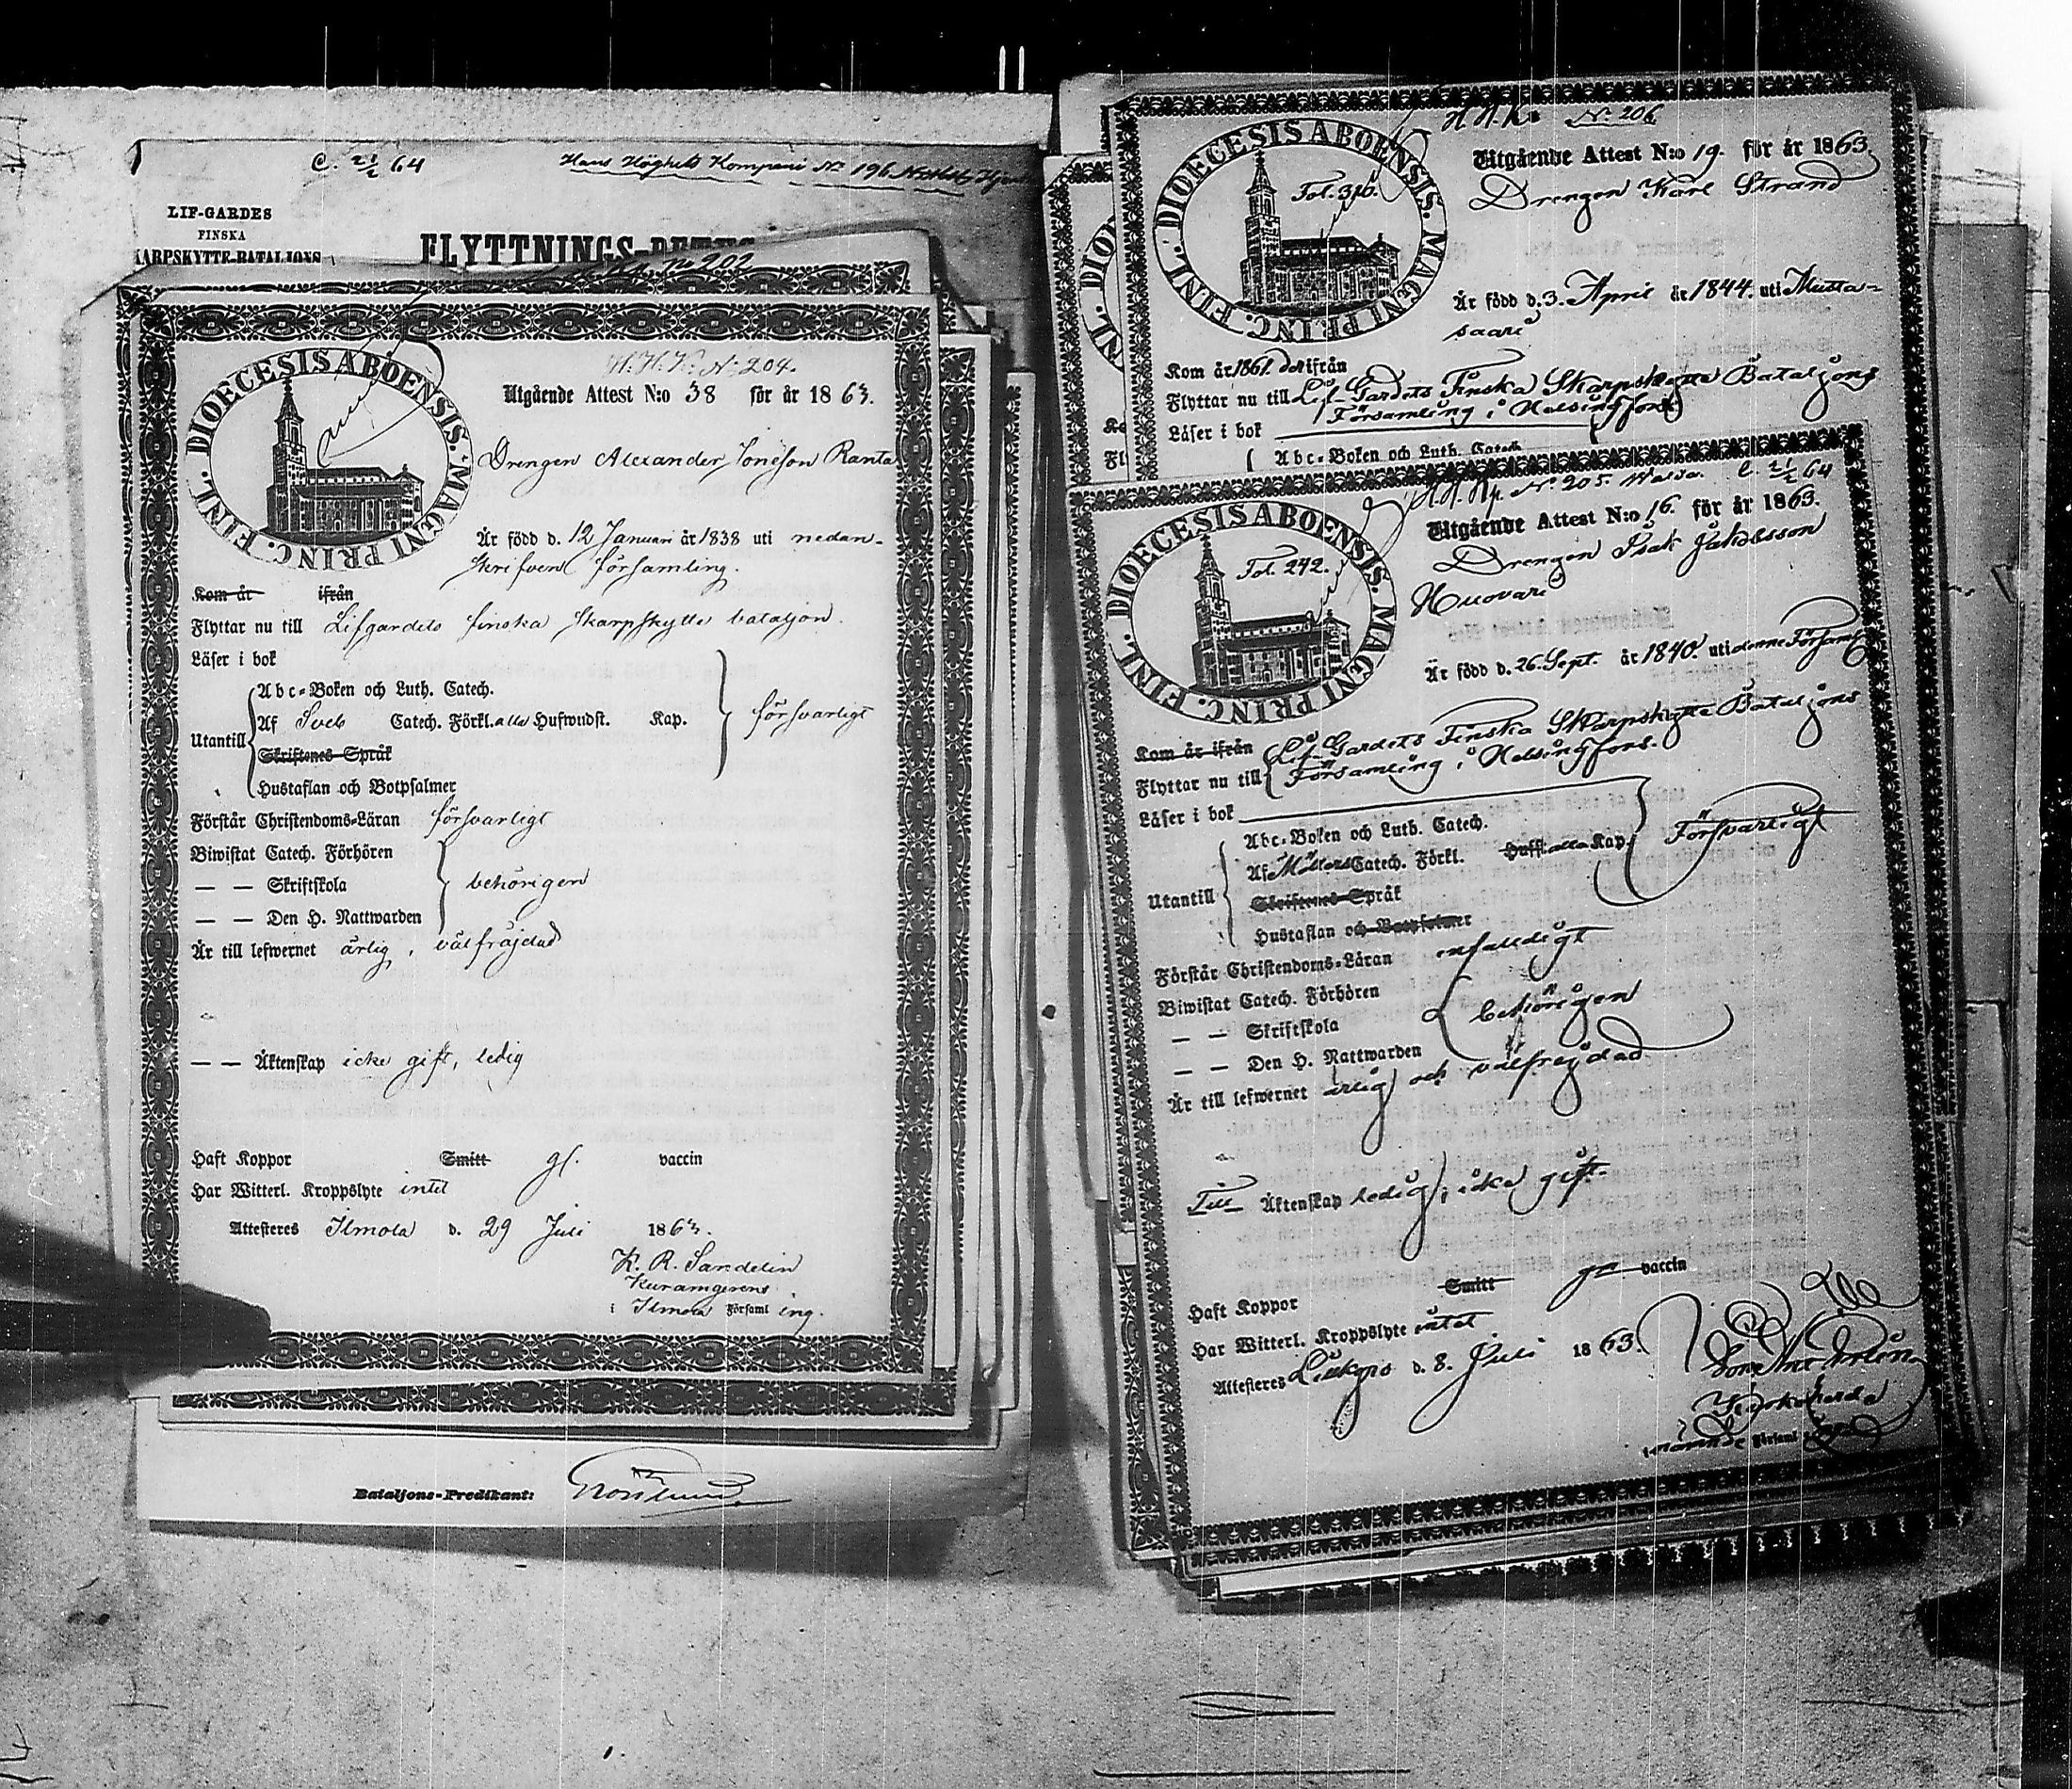 C. 21/2 64 Hans Höghets Kompani No 196
LIF-GARDES
FINSKA
KARPSKYTTE-BATALJONS
FLYTTNINGS-BETYG
No 202
DIOECESIS ABOENSIS. MAGNI PRINC. FINL.
H. H. K. No 204.
Utgående Attest N:o 38 för år 1863.
Drengen Alexander Jonesson Ranta
Är född d. 12 Januari år 1838 uti nedan-
skrifven församling.
Kom år ifrån
Flyttar nu till Lifgardets finska skarpskytte bataljon.
Läser i bok
Utantill
Abc-Boken och Luth. Catech.
Af Sveb Catech. Förkl. alla Hufwudst. Kap.
försvarligt
Skriftenes Språk
Hustaflan och Botpsalmer
Förstår Christendoms-Läran försvarligt
Biwistat Catech. Förhören
— — Skriftskola
behörigen
— — Den H. Nattwarden
Är till lefwernet ärlig, välfräjdad
— — Äktenskap icke gift, ledig
Haft Koppor Smitt gl. vaccin
Har Witterl. Kroppslyte intet
Attesteres Ilmola d. 29 Juli 1863.
K. R. Sandelin
Kuramgerens
i Ilmola Församl ing.
Bataljons-Predikant:
H. H. K. No 206
DIOECESIS ABOENSIS. MAGNI PRINC. FINL.
Fol. 310.
Utgående Attest N:o 19. för år 1863.
Drengen Karl Strand
Är född d. 3. April år 1844. uti Musta-
saari
Kom år 1861. derifrån
Flyttar nu till Lif-Gardets Finska Skarpskytte Bataljons
Församling i Helsingfors
Läser i bok
Abc-Boken och Luth. Catech.
H. H. Kp. No 205. Wasa. C. 21/2 64
DIOECESIS ABOENSIS. MAGNI PRINC. FINL.
Fol. 242.
Utgående Attest N:o 16. för år 1863.
Drengen Isak Jakobsson
Huovari
Är född d. 26. Sept. år 1840. uti denna Församl
Kom år ifrån
Flyttar nu till Lif-Gardets Finska Skarpskytte Bataljons
Församling i Helsingfors.
Läser i bok
Utantill
Abc-Boken och Luth. Catech.
Af Möllers Catech. Förkl. Hufst. alla Kap.
Försvarligt
Skriftenes Språk
Hustaflan och Botpsalmer
Förstår Christendoms-Läran enfalldigt
Biwistat Catech. Förhören
— — Skriftskola
behörigen
— — Den H. Nattwarden
Är till lefwernet ärlig och välfrejdad
Till Äktenskap ledig, icke gift.
Haft Koppor Smitt vaccin
Har Witterl. Kroppslyte intet
Attesteres d. 8. Juli 1863.
Kyrkoherde
Församl